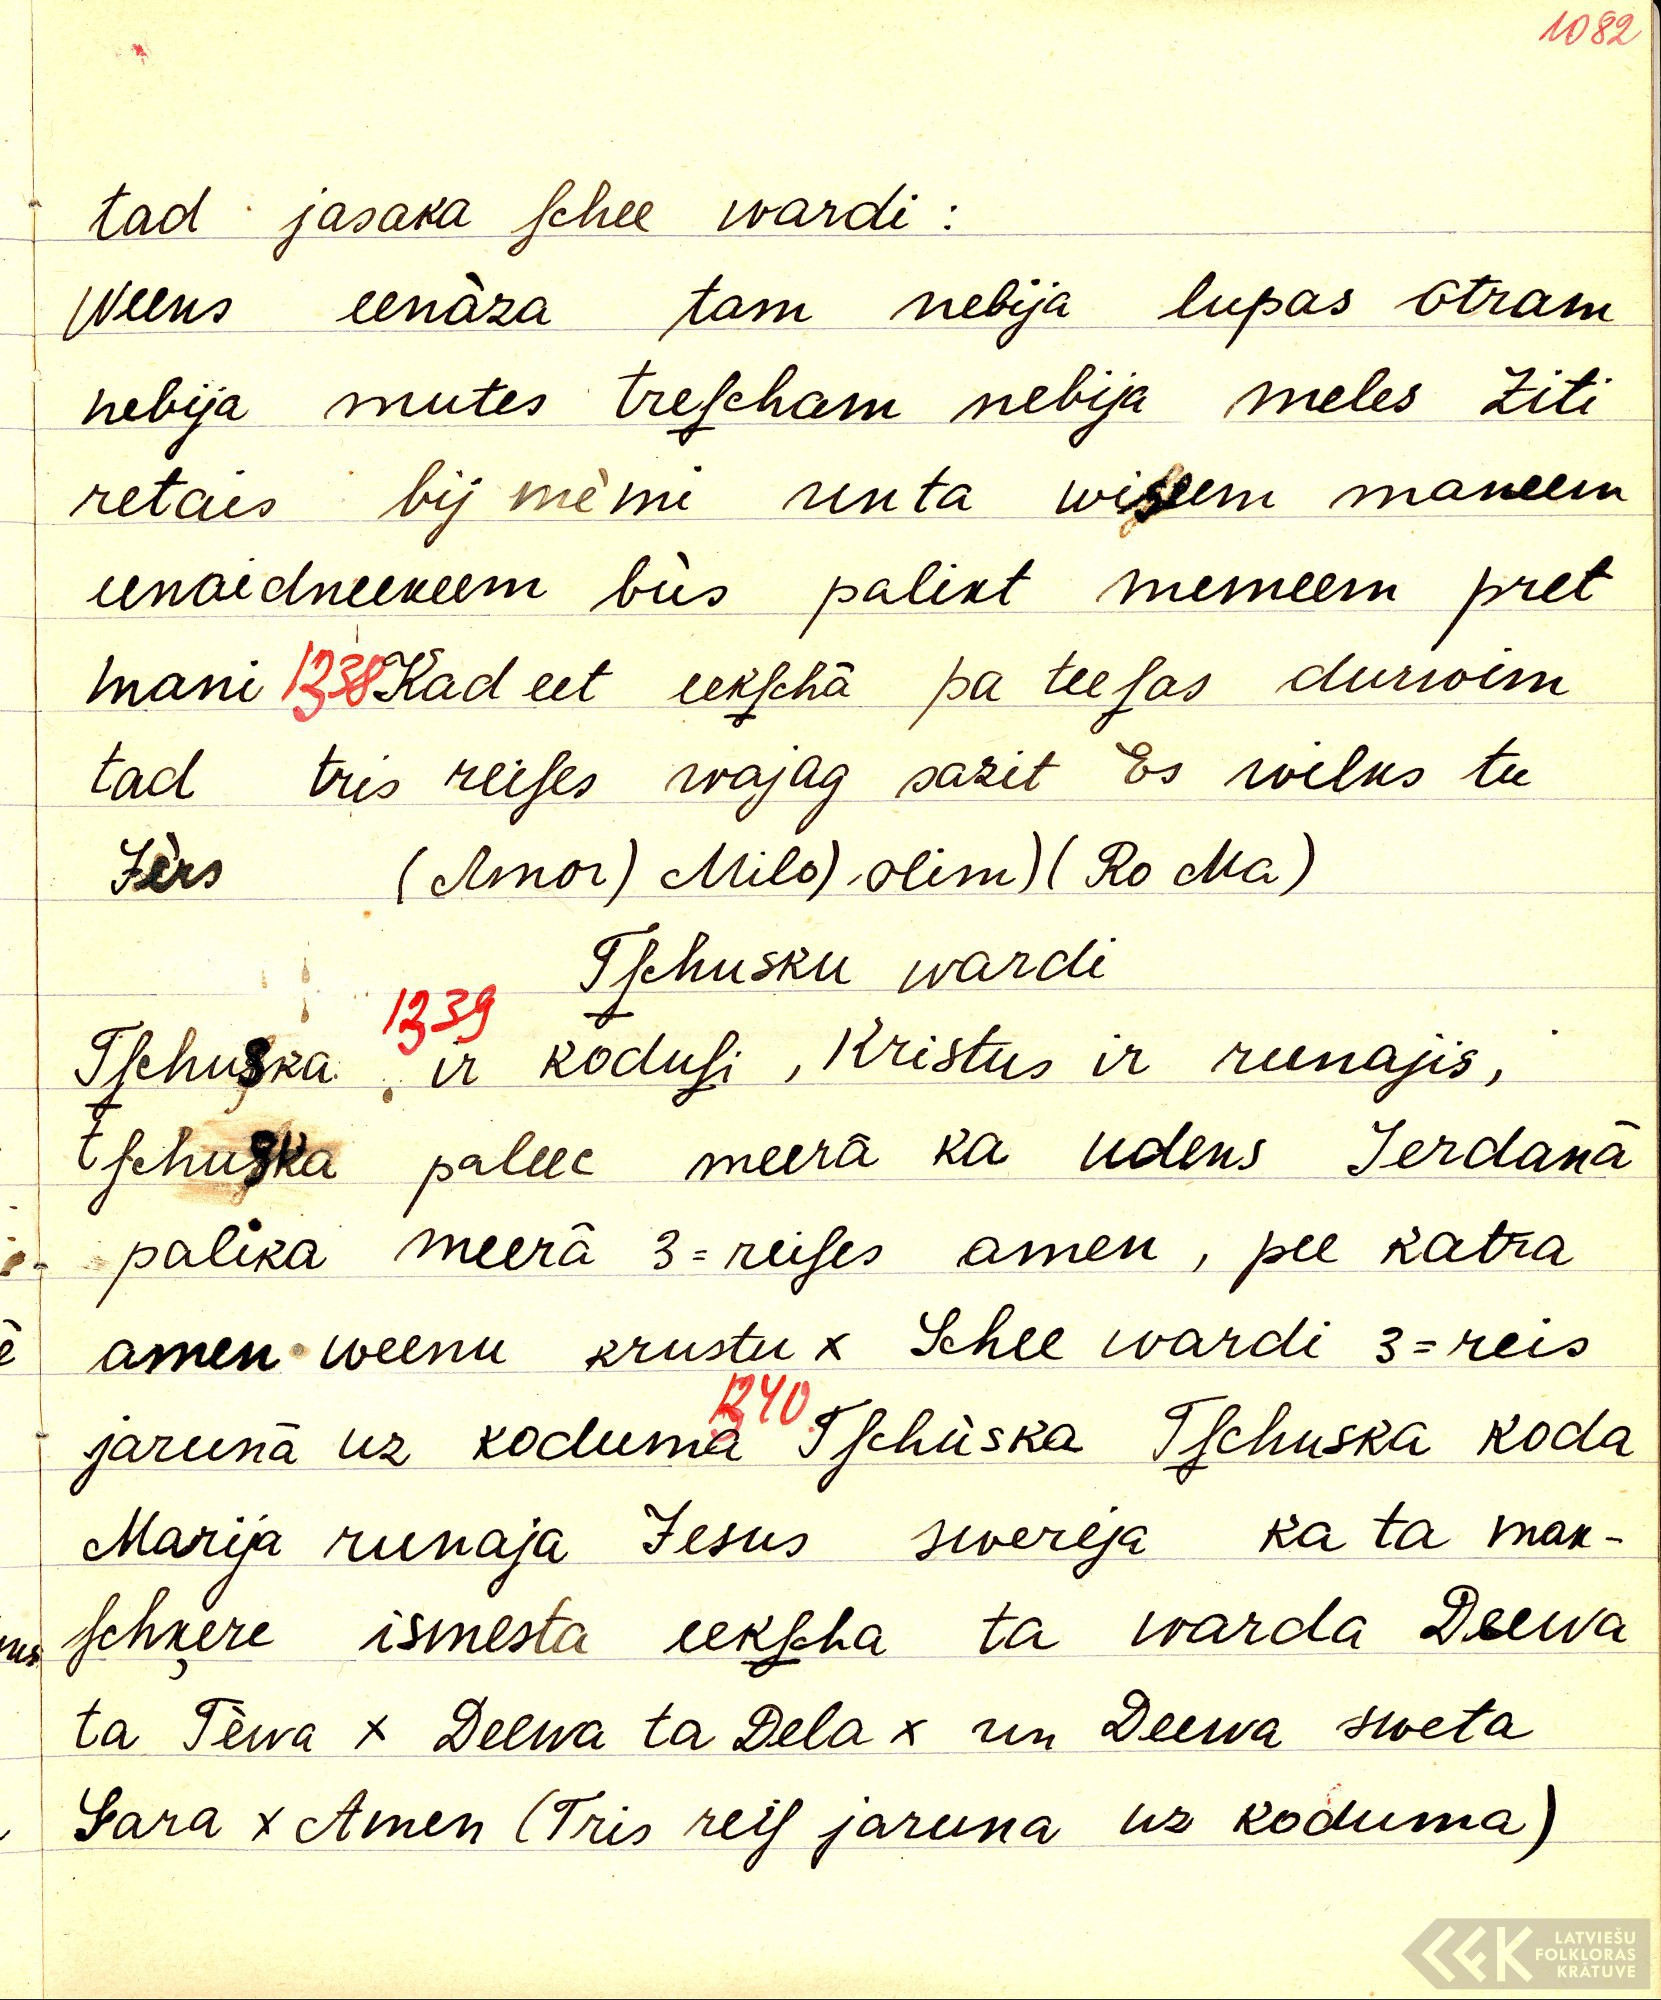 1082
tad jasaka ſchee wardi:
Weens eenàza tam nebija lupas otram
nebija mutes treſcham nebija meles Ziti
retais bij mèmi un ta wiseem maneem
eenaidneekeem bùs palikt memeem pret
mani 1238 Kad eet eekſchā pa teeſas durwim
tad tris reiſes wajag sazit Es wilks tu
Jèrs (Amor) Milo) olim) (Ro Ma)
Tſchusku wardi
1239
Tſchuska ir koduſi, Kristus ir runajis,
tſchuska paleec meerā ka udens Jerdanā
palika meerā 3=reiſes amen, pee katra
amen weenu krustu x Schee wardi 3=reis
jarunā uz koduma 1240 Tſchùska Tſchuska koda
Marija runaja Jesus swereja ka ta mak-
ſchķere ismesta eekſcha ta warda Deewa
ta Tèwa x Deewa ta Dela x un Deewa sweta
Gara x Amen (Tris reiſ jaruna uz koduma)
LATVIEŠU
FOLKLORAS
KRĀTUVE